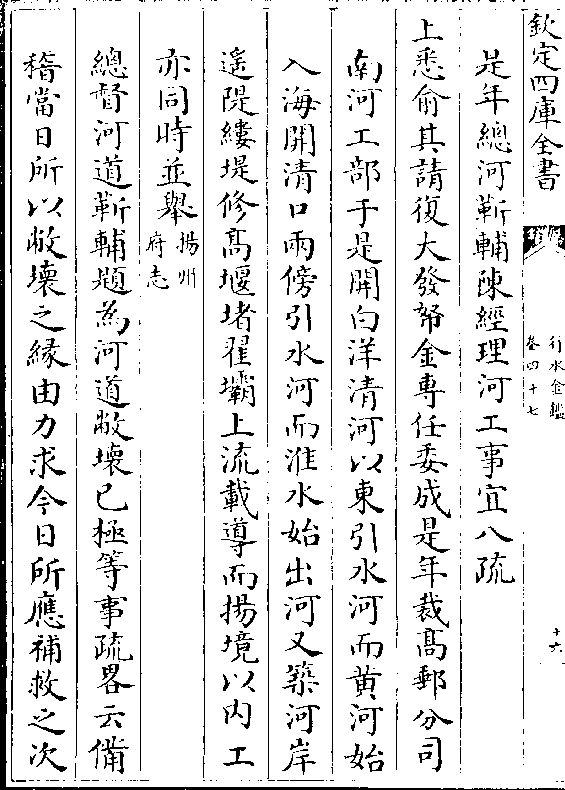 欽定四庫全書
行水金鑑
卷四十七
十六
是年總河靳輔陳經理河工事宜八疏
上悉俞其請復大發帑金專任委成是年裁髙郵分司
南河工部于是開白洋清河以東引水河而黄河始
入海開清口兩傍引水河而淮水始出河又築河岸
遥隄縷堤修髙堰堵翟壩上流載導而揚境以内工
亦同時並舉揚州府志
總督河道靳輔題為河道敝壞已極等事疏畧云備
稽當日所以敝壞之縁由力求今日所應補救之次